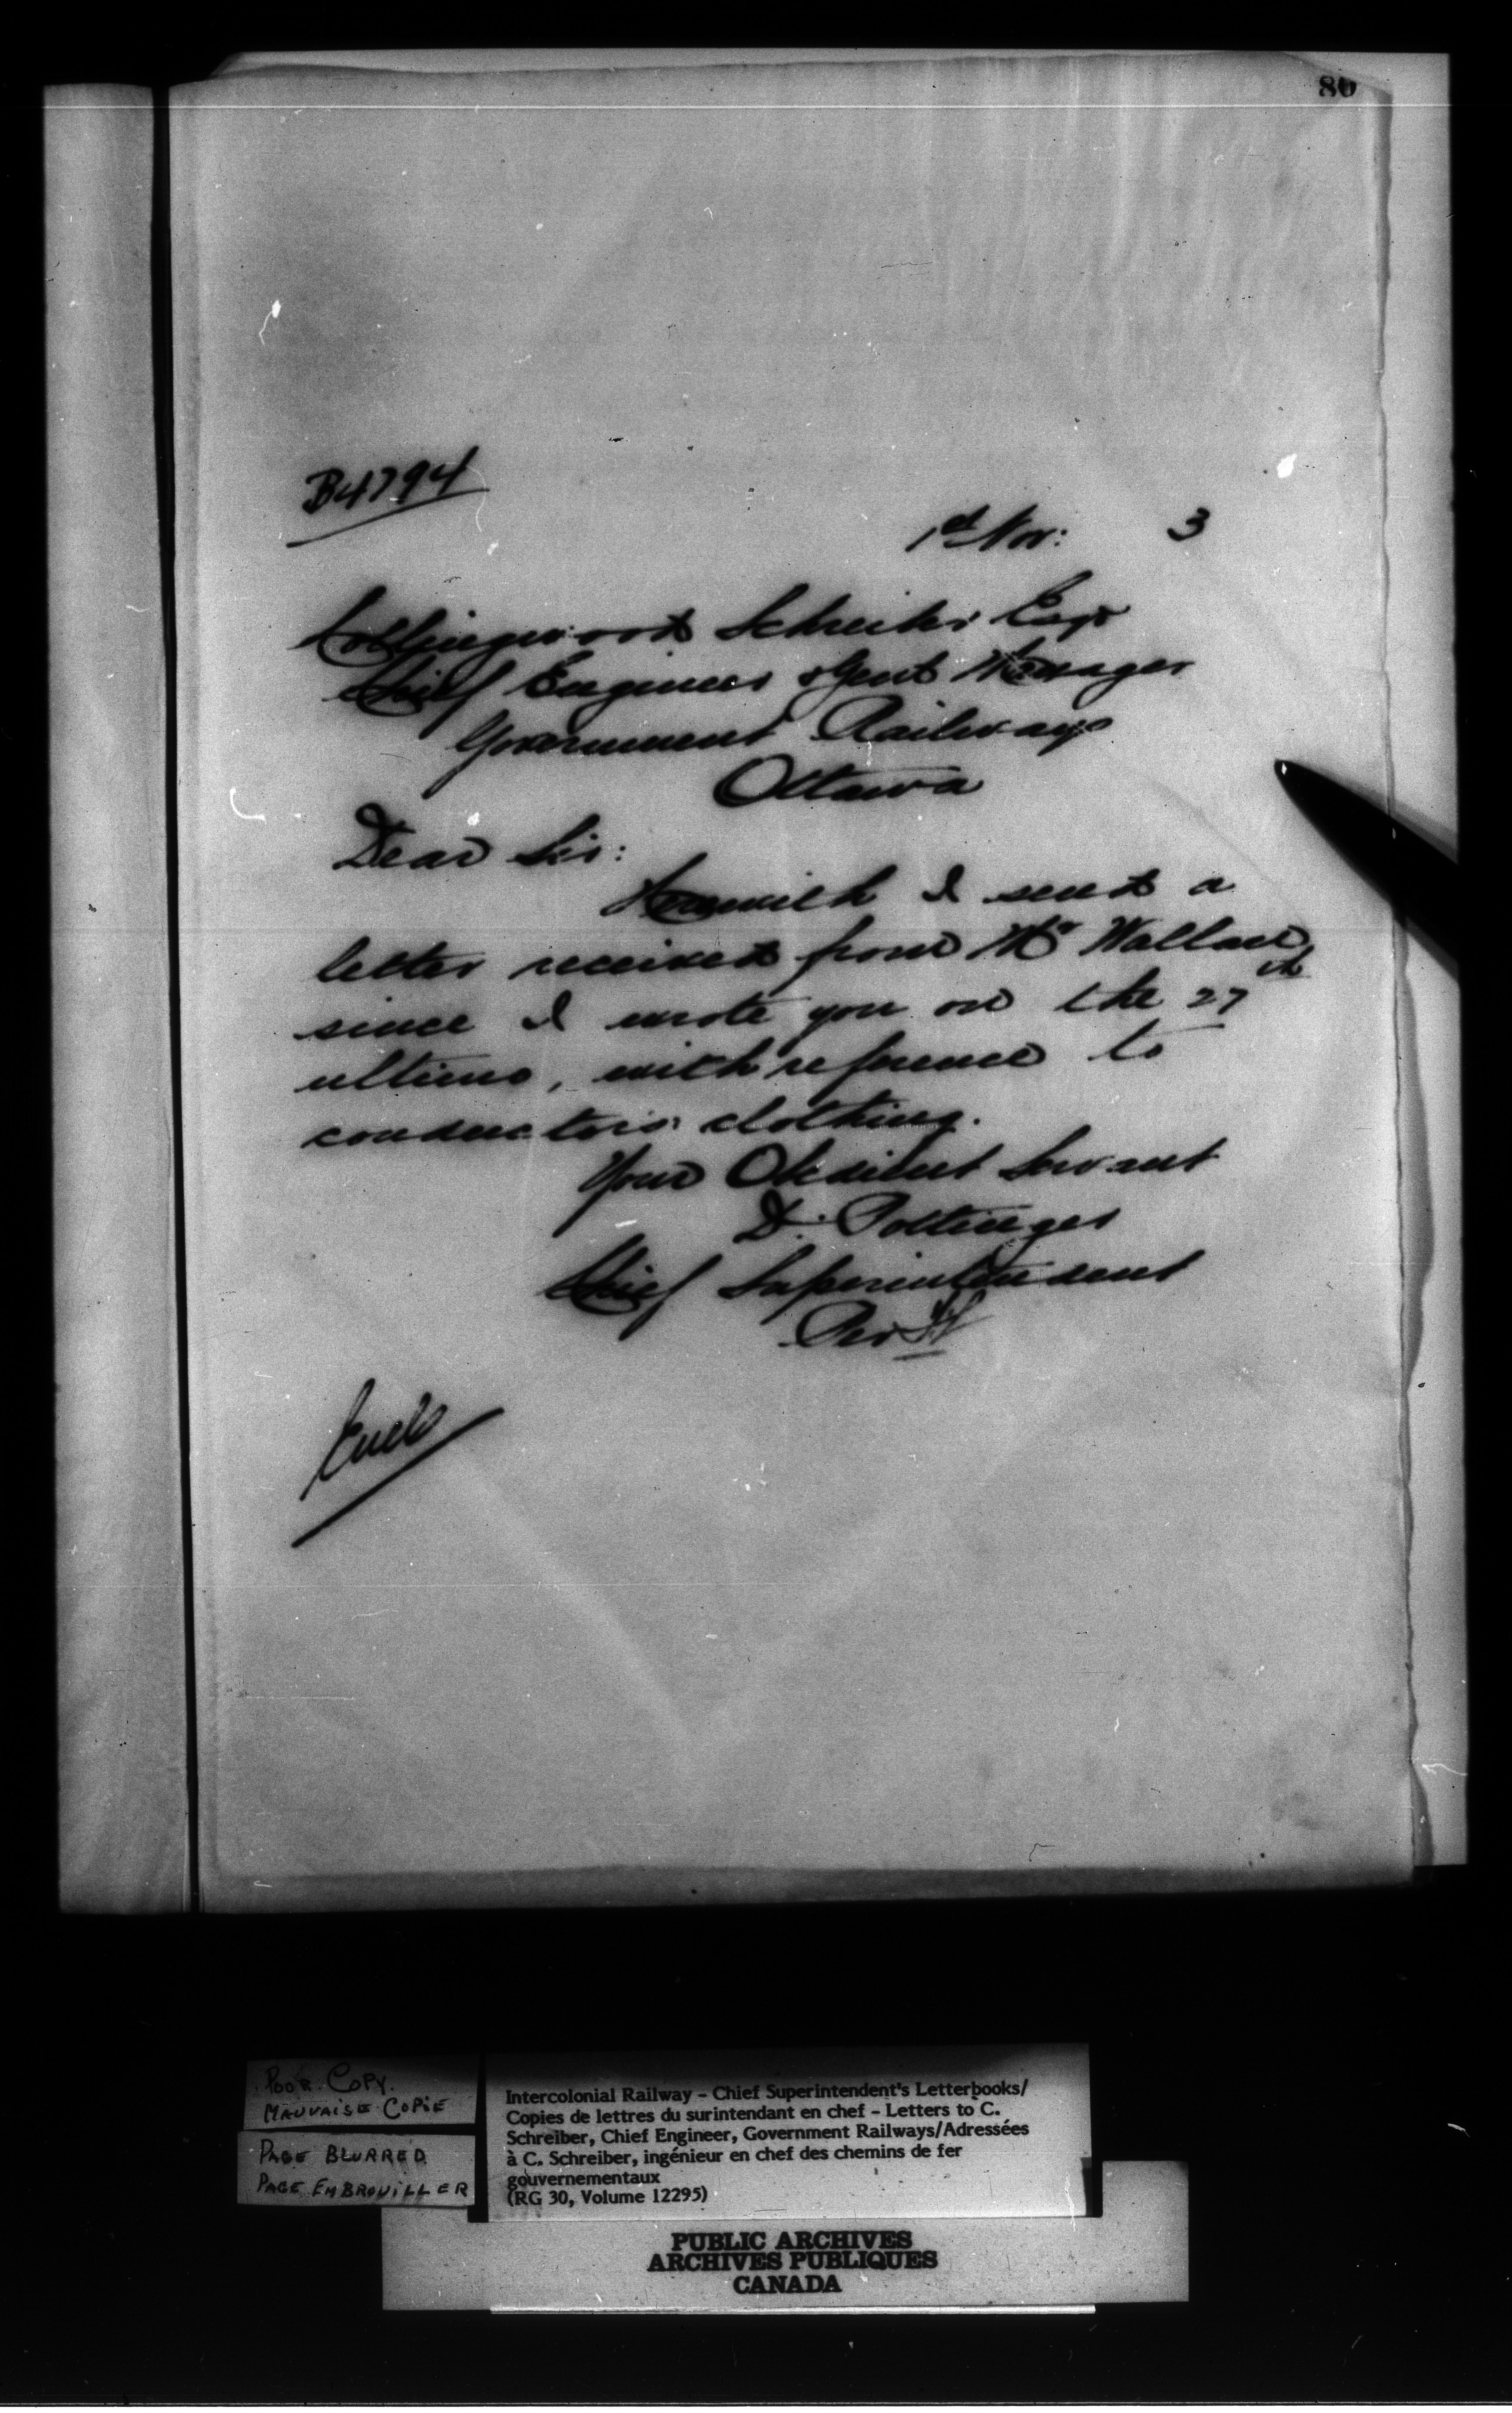 80
B4794
1st Nov: 3
Collingwood Schreiber Esqr
Chief Engineer & Genl Manager
Government Railways
Ottawa
Dear Sir:
Herewith I send a
letter received from Mr Wallace,
since I wrote you on the 27th
ultimo, with reference to
conductors' clothing.
Your Obedient Servant
D. Pottinger
Chief Superintendent
Per
Encls
POOR COPY.
MAUVAISE COPIE
PAGE BLURRED
PAGE EMBROUILLER
Intercolonial Railway - Chief Superintendent's Letterbooks/
Copies de lettres du surintendant en chef - Letters to C.
Schreiber, Chief Engineer, Government Railways/Adressées
à C. Schreiber, ingénieur en chef des chemins de fer
gouvernementaux
(RG 30, Volume 12295)
PUBLIC ARCHIVES
ARCHIVES PUBLIQUES
CANADA